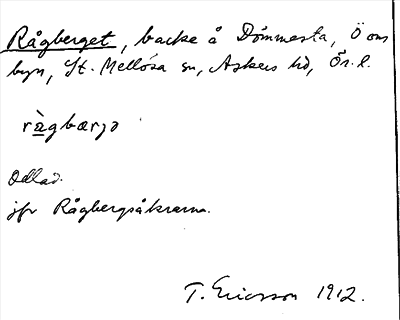 Rågberget, backe å Dömmesta, Ö om
byn, St. Mellösa sn, Askers hd, Ör. l.
rågbærjə
Odlad.
jfr Rågbergsåkrarna.
T. Ericsson 1912.